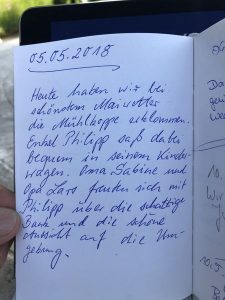 05.05.2018
Heute haben wir bei
schönstem Maiwetter
die Mühlkoppe erklommen.
Enkel Philipp saß dabei
bequem in seinem Kinder-
wagen. Oma Sabine und
Opa Lars freuten sich mit
Philipp über die schattige
Bank und die schöne
Aussicht auf die Um-
gebung.